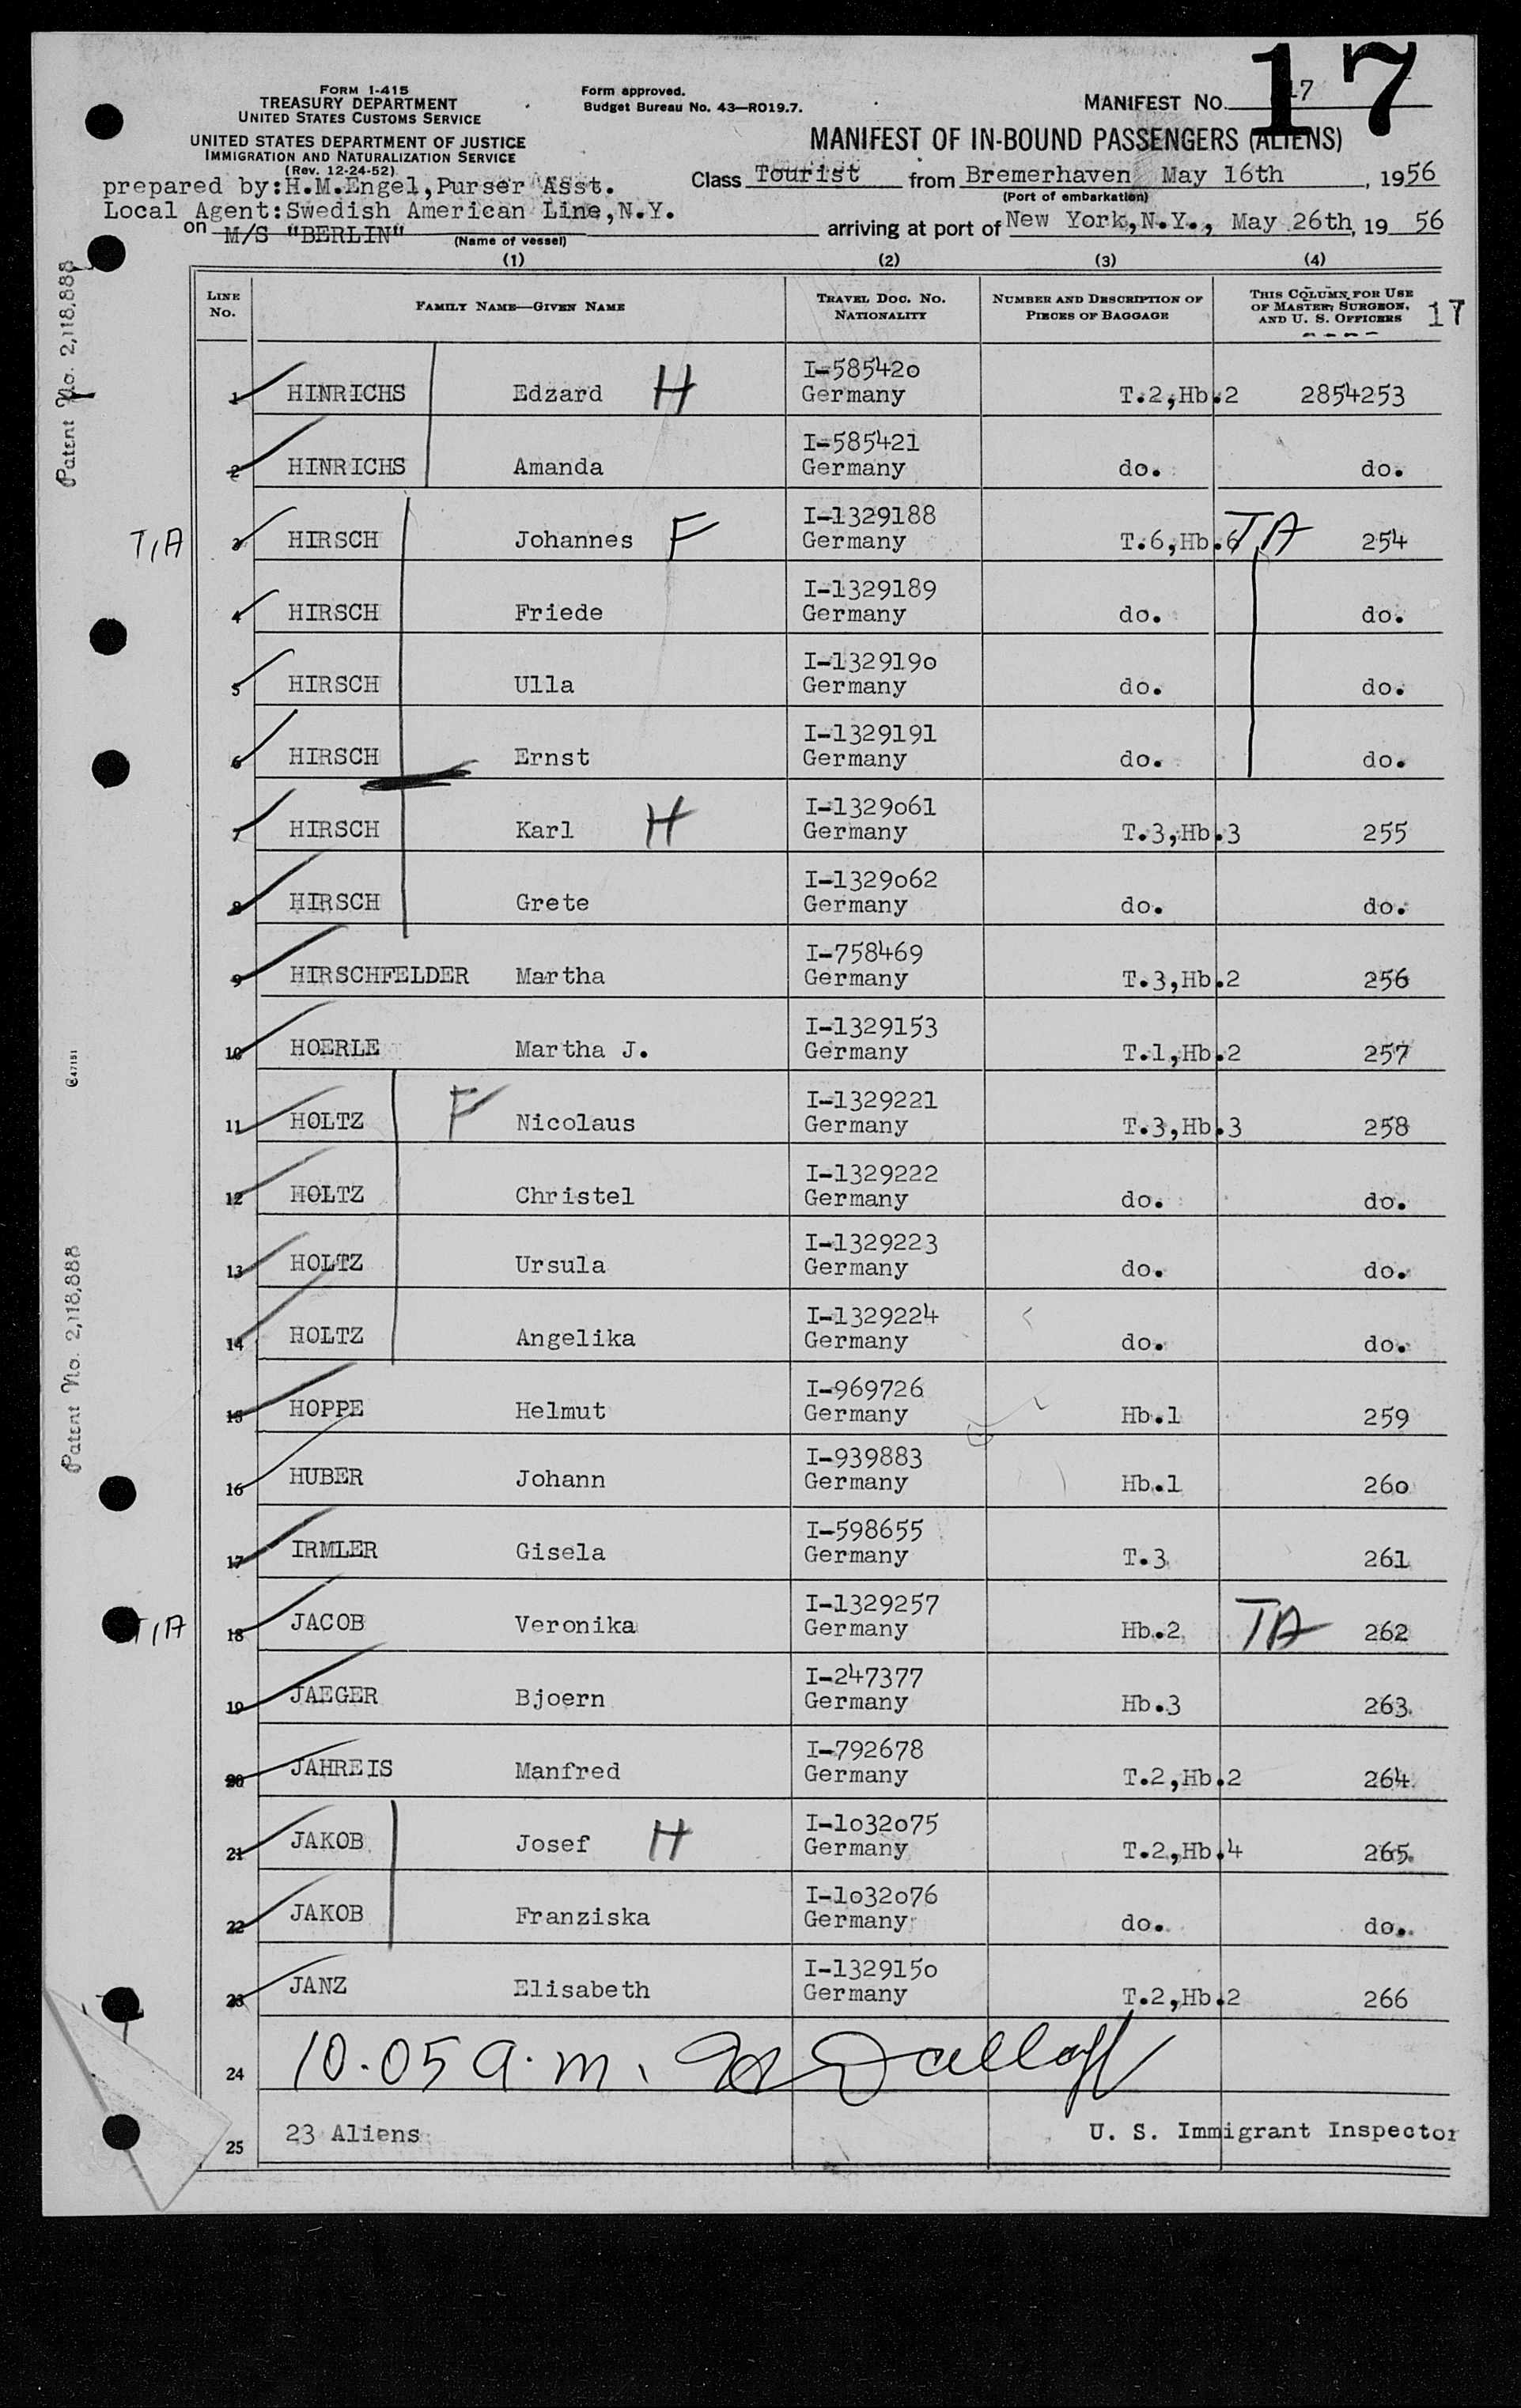 17
FORM I-415
TREASURY DEPARTMENT
UNITED STATES CUSTOMS SERVICE
UNITED STATES DEPARTMENT OF JUSTICE
IMMIGRATION AND NATURALIZATION SERVICE
(Rev. 12-24-52)
Form approved.
Budget Bureau No. 43—RO19.7.
MANIFEST NO. 17
MANIFEST OF IN-BOUND PASSENGERS (ALIENS)
prepared by:H.M.Engel,Purser Asst.
Class Tourist from Bremerhaven May 16th, 1956
(Port of embarkation)
Local Agent:Swedish American Line,N.Y.
on M/S "BERLIN"
(Name of vessel)
arriving at port of New York,N.Y., May 26th, 19 56
(1) (2) (3) (4)
LINE NO. FAMILY NAME—GIVEN NAME TRAVEL DOC. NO. NATIONALITY NUMBER AND DESCRIPTION OF PIECES OF BAGGAGE THIS COLUMN FOR USE OF MASTER, SURGEON, AND U. S. OFFICERS 17
I-585420
1 HINRICHS Edzard H Germany T.2,Hb.2 2854253
I-585421
2 HINRICHS Amanda Germany do. do.
I-1329188
T,A 3 HIRSCH Johannes F Germany T.6,Hb.6 TA 254
I-1329189
4 HIRSCH Friede Germany do. do.
I-1329190
5 HIRSCH Ulla Germany do. do.
I-1329191
6 HIRSCH Ernst Germany do. do.
I-1329061
7 HIRSCH Karl H Germany T.3,Hb.3 255
I-1329062
8 HIRSCH Grete Germany do. do.
I-758469
9 HIRSCHFELDER Martha Germany T.3,Hb.2 256
I-1329153
10 HOERLE Martha J. Germany T.1,Hb.2 257
I-1329221
11 HOLTZ F Nicolaus Germany T.3,Hb.3 258
I-1329222
12 HOLTZ Christel Germany do. do.
I-1329223
13 HOLTZ Ursula Germany do. do.
I-1329224
14 HOLTZ Angelika Germany do. do.
I-969726
15 HOPPE Helmut Germany Hb.1 259
I-939883
16 HUBER Johann Germany Hb.1 260
I-598655
17 IRMLER Gisela Germany T.3 261
I-1329257
T,A 18 JACOB Veronika Germany Hb.2 TA 262
I-247377
19 JAEGER Bjoern Germany Hb.3 263
I-792678
20 JAHREIS Manfred Germany T.2,Hb.2 264
I-1032075
21 JAKOB Josef H Germany T.2,Hb.4 265
I-1032076
22 JAKOB Franziska Germany do. do.
I-1329150
23 JANZ Elisabeth Germany T.2,Hb.2 266
24 10.05 a.m.
25 23 Aliens U. S. Immigrant Inspector
Patent No. 2,118,888
C47151
Patent No. 2,118,888